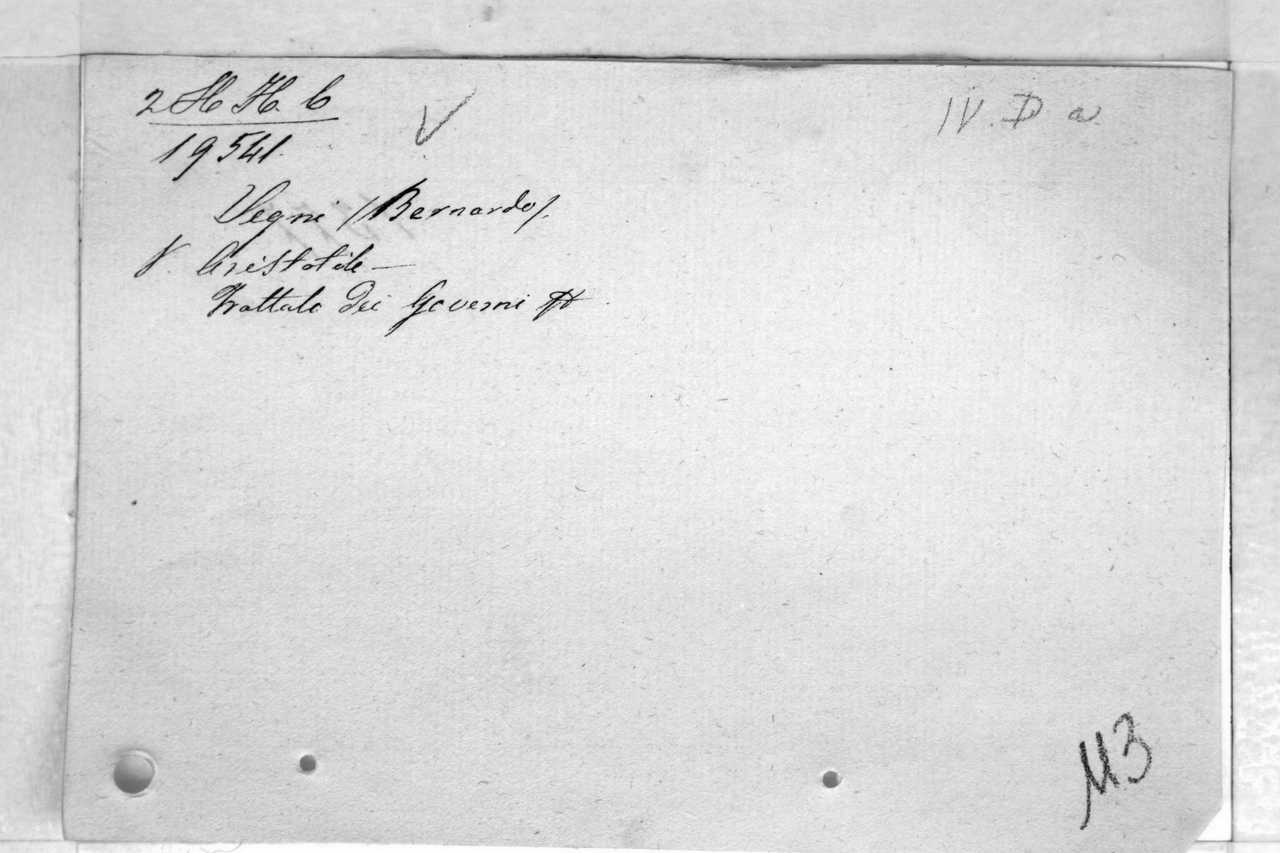 2 H H b
19541.
IV. D a
Segni /Bernardo/.
V. Aristotile —
Trattato dei Governi
M3